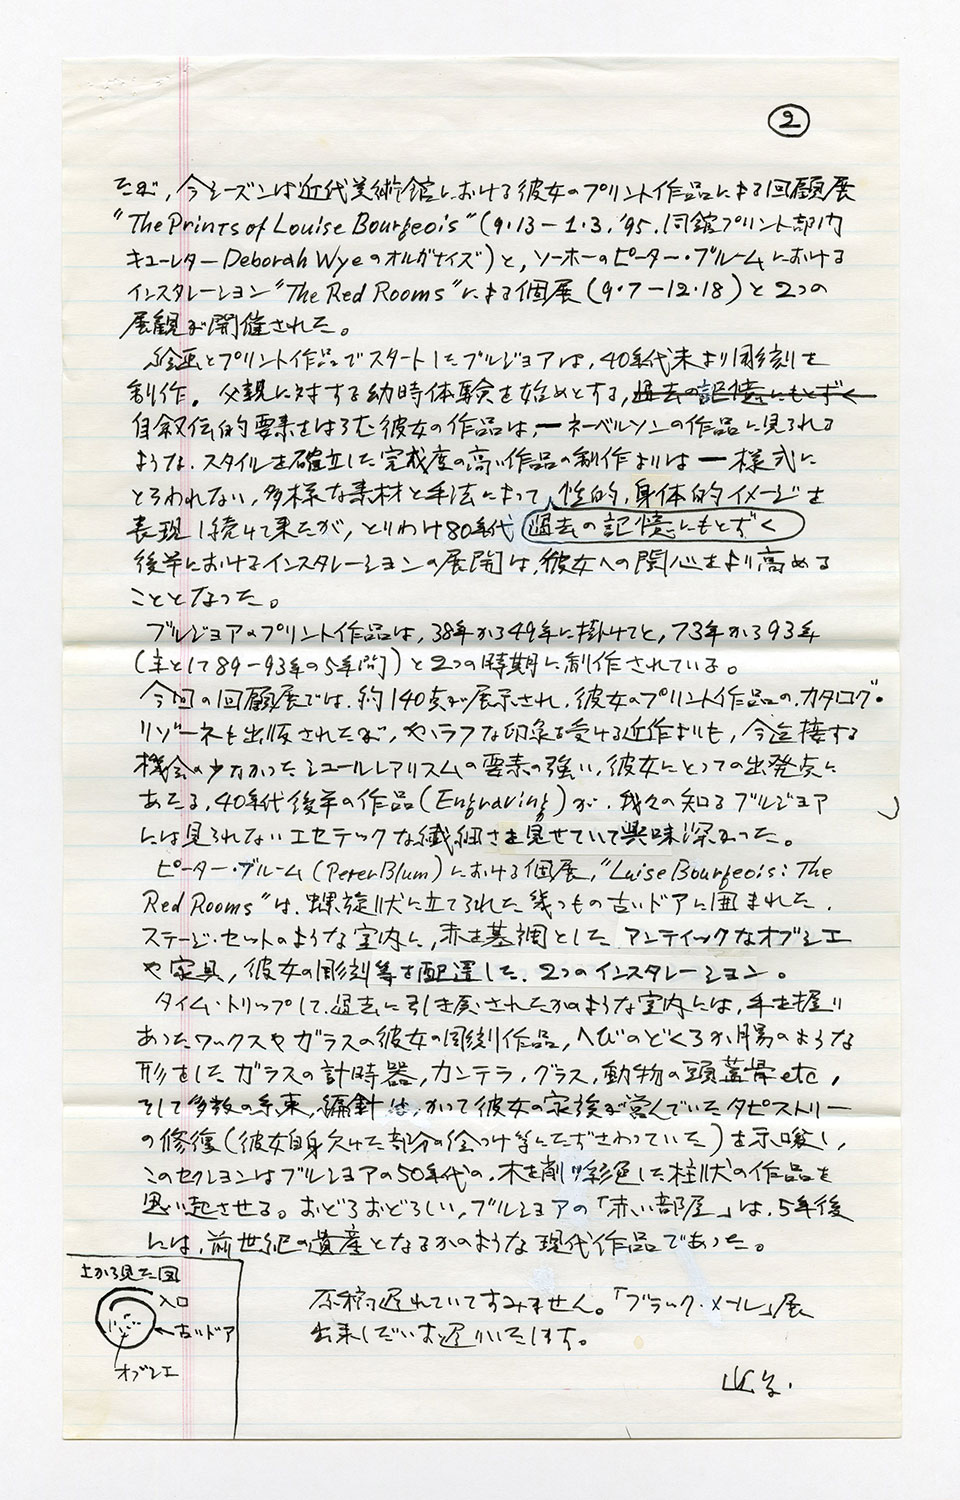 2
たが、今シーズンは近代美術館における彼女のプリント作品による回顧展
"The Prints of Louise Bourgeois"(9・13ー1・3,'95.同館プリント部内
キューレター Deborah Wye のオルガナイズ)と、ソーホーのピーター・ブルームにおける
インスタレーション"The Red Rooms"による個展(9・7ー12・18)と2つの
展観が開催された。
絵画とプリント作品でスタートしたブルジョアは、40年代末より彫刻を
制作。父親に対する幼時体験を始めとする、過去の記憶にもとずく
自叙伝的要素をはらむ彼女の作品は、ーネーベルソンの作品に見られる
ような、スタイルを確立した完成度の高い作品の制作よりは一様式に
とらわれない、多様な素材と手法によって、性的、身体的イメージを
表現し続けて来たが、とりわけ80年代 過去の記憶にもとずく
後半におけるインスタレーションの展開は、彼女への関心をより高める
こととなった。
ブルジョアのプリント作品は、38年から49年に掛けてと、73年から93年
(主として89ー93年の5年間)と2つの時期に制作されている。
今回の回顧展では、約140点が展示され、彼女のプリント作品の、カタログ・
リゾーネも出版されたが、ややラフな印象を受ける近作よりも、今迄接する
機会の少なかったシュールレアリスムの要素の強い、彼女にとっての出発点に
あたる、40年代後半の作品(Engraving)が、我々の知るブルジョア
には見られないエセテックな繊細さを見せていて興味深かった。
ピーター・ブルーム(Peter Blum)における個展、"Luise Bourgeois: The
Red Rooms"は、螺旋状に立てられた幾つもの古いドアに囲まれた、
ステージ・セットのような室内に、赤を基調としたアンティックなオブジェ
や家具、彼女の彫刻等を配達した、2つのインスタレーション。
タイム・トリップして、過去に引き戻されたかのような室内には、手を握り
あったワックスやガラスの彼女の彫刻作品、へびのどくろか腸のような
形をしたガラスの計時器、カンテラ、グラス、動物の頭蓋骨etc,
そして多数の糸束、編針は、かつて彼女の家族が営んでいたタピストリー
の修復(彼女自身欠けた部分の絵つけ等にたずさわっていた)を示唆し、
このセクションはブルジョアの50年代の、木を削り彩色した柱状の作品を
思い起させる。おどろおどろしい、ブルジョアの「赤い部屋」は、5年後
には、前世紀の遺産となるかのような現代作品であった。
上から見た図
入口
古いドア
オブジェ
原稿遅れていてすみません。「ブラック・メール」展
出来しだいお送りいたします。